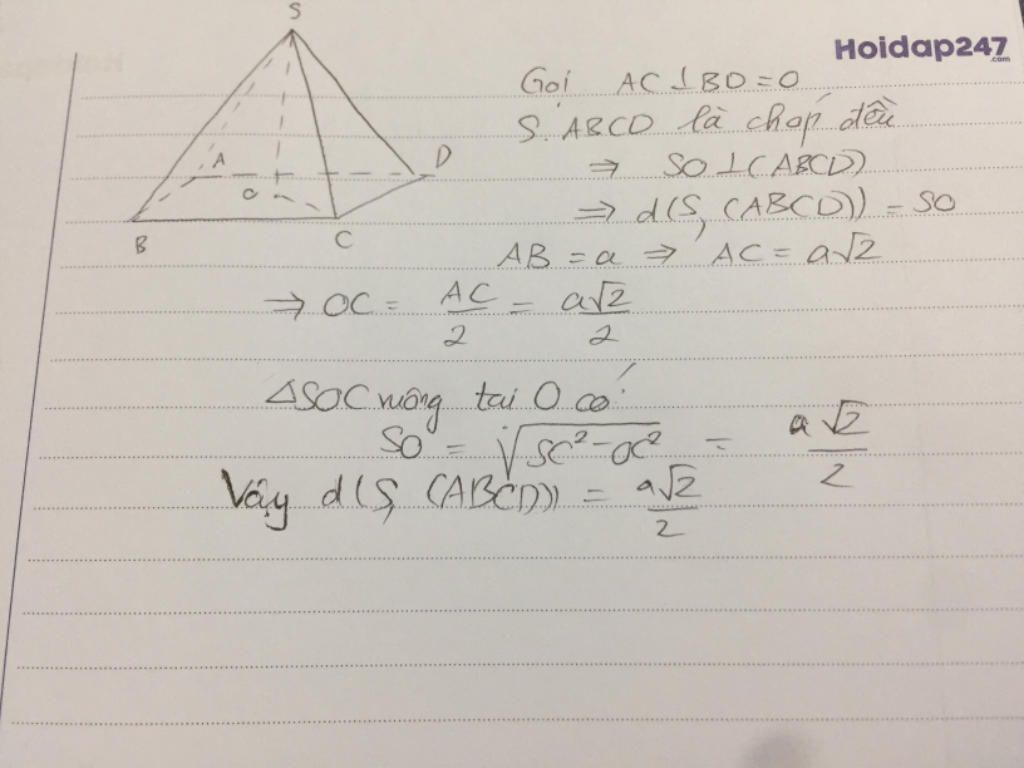 S
Hoidap247
.com
Gọi AC ⊥ BD = O
S.ABCD là chóp đều
⇒ SO ⊥ (ABCD)
⇒ d(S, (ABCD)) = SO
A
D
O
B
C
AB = a ⇒ AC = a√2
⇒ OC = AC/2 = a√2/2
ΔSOC vuông tại O có:
SO = √(SC² - OC²) = a√2/2
Vậy d(S, (ABCD)) = a√2/2